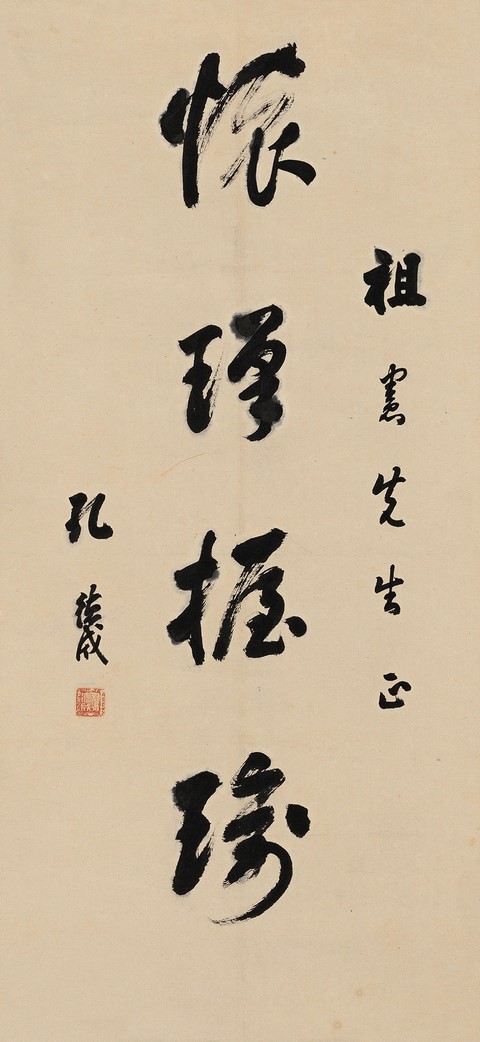 祖憲先生正
懷瑾握瑜
孔德成